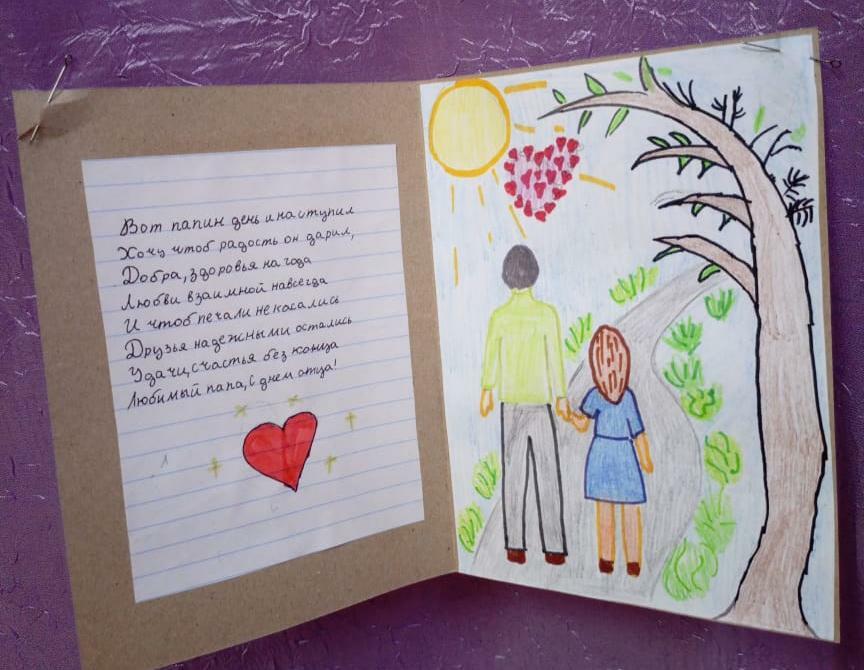 Вот папин день и наступил
Хочу чтоб радость он дарил,
Добра, здоровья на года
Любви взаимной навсегда
И чтоб печали не касались
Друзья надежными остались
Удачи, счастья без конца
Любимый папа, с днем отца!